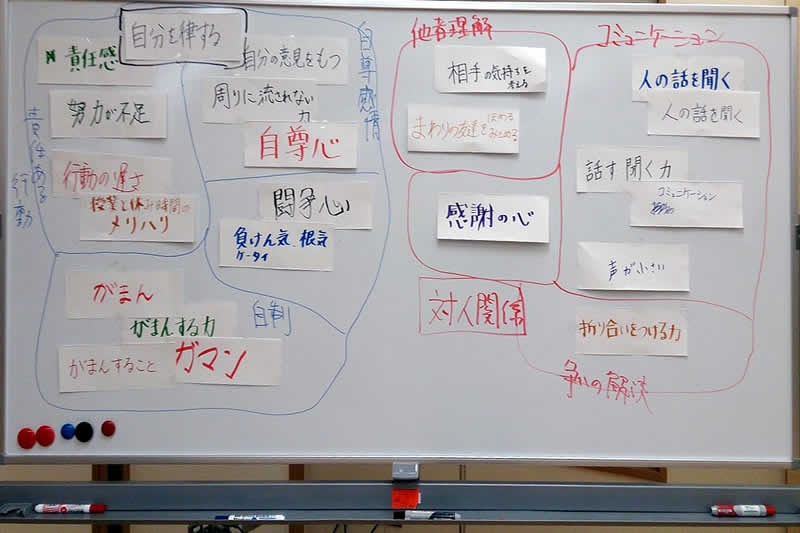 自分を律する
責任感
努力が不足
行動の遅さ
授業と休み時間の
メリハリ
責任ある
行動
自分の意見をもつ
周りに流されない
力
自尊心
自尊感情
闘争心
負けん気、根気
がまん
がまんする力
がまんすること
ガマン
自制
他者理解
相手の気持ちを
考える
まわりの友達を
ほめる
みとめる
感謝の心
対人関係
コミュニケーション
人の話を聞く
人の話を聞く
話す聞く力
コミュニケーション
声が小さい
折り合いをつける力
争いの解決